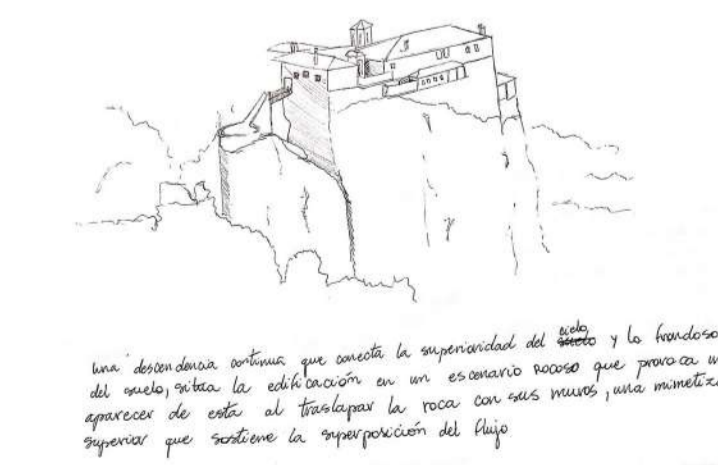 una descendencia continua que conecta la superioridad del cielo y lo frondoso
del suelo, sitúa la edificación en un escenario rocoso que provoca un
aparecer de esta al traslapar la roca con sus muros, una mimetiza
superior que sostiene la superposición del flujo